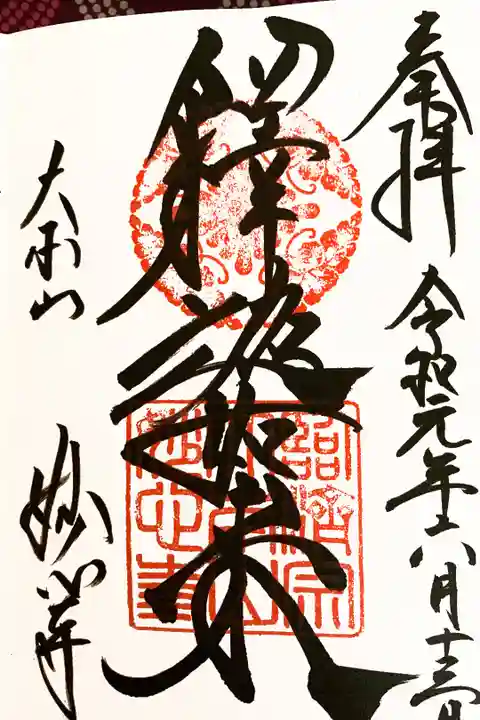 奉拝
令和元年六月十三日
釋迦如来
大本山
妙心寺
臨濟宗
大本山
妙心寺